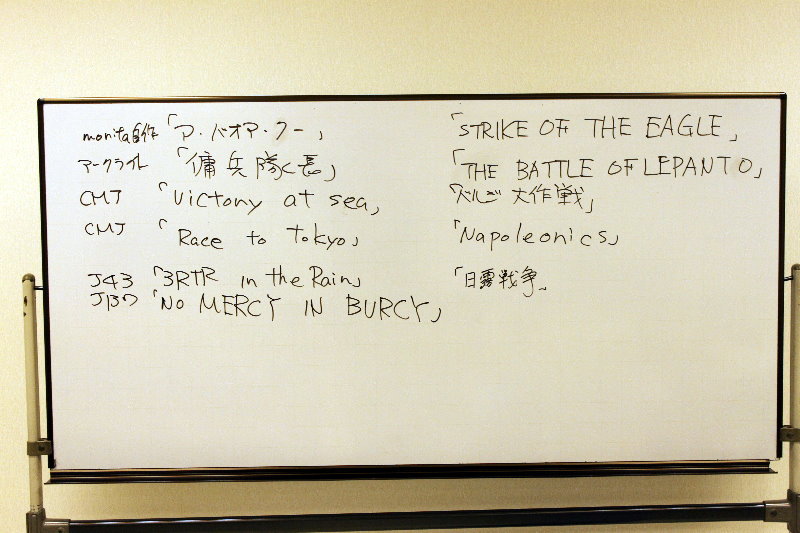 morita自作「ア・バオア・クー」
アークライト「傭兵隊長」
CMJ「Victory at sea」
CMJ「Race to Tokyo」
J43「3RTR in the Rain」
J137「NO MERCY IN BURCY」
「STRIKE OF THE EAGLE」
「THE BATTLE OF LEPANTO」
「バルジ大作戦」
「Napoleonics」
「日露戦争」